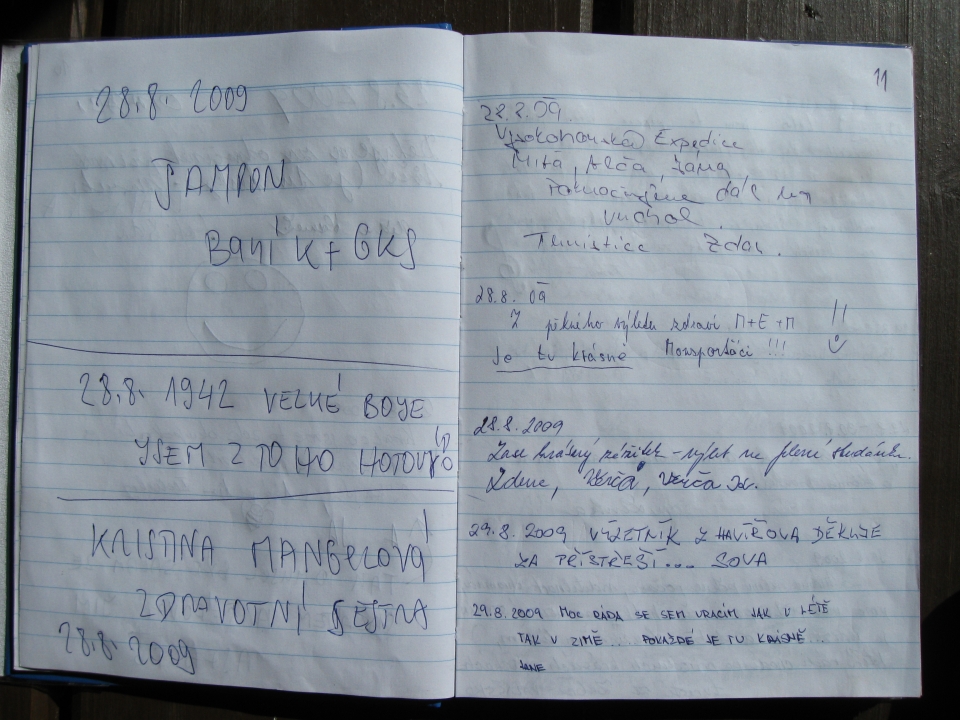 28.8. 2009
TAMPON
Baník + GKS
28.8. 1942 VELKÉ BOJE
JSEM Z TOHO HOTOVÝ
KRISTINA MANGELOVÁ
ZDRAVOTNÍ SESTRA
28.8 2009
11
28.8.09.
Vysokohorská Expedice
Míťa, Alča, Jáma
Pokračujeme dál na
vrchol.
Turistice Zdar.
28.8. 09
Z pěkného výletu zdraví M+E+M !!
je tu krásně Monsportáci !!!
28.8.2009
Zase krásný zážitek - výlet na studánku.
Zdena, Verča, Verča
29.8.2009 VÝLETNÍK Z HAVÍŘOVA DĚKUJE
ZA PŘÍSTŘEŠÍ... SOVA
29.8.2009 MOC RÁDA SE SEM VRACÍM JAK V LÉTĚ
TAK V ZIMĚ... POKAŽDÉ JE TU KRÁSNĚ...
JANE